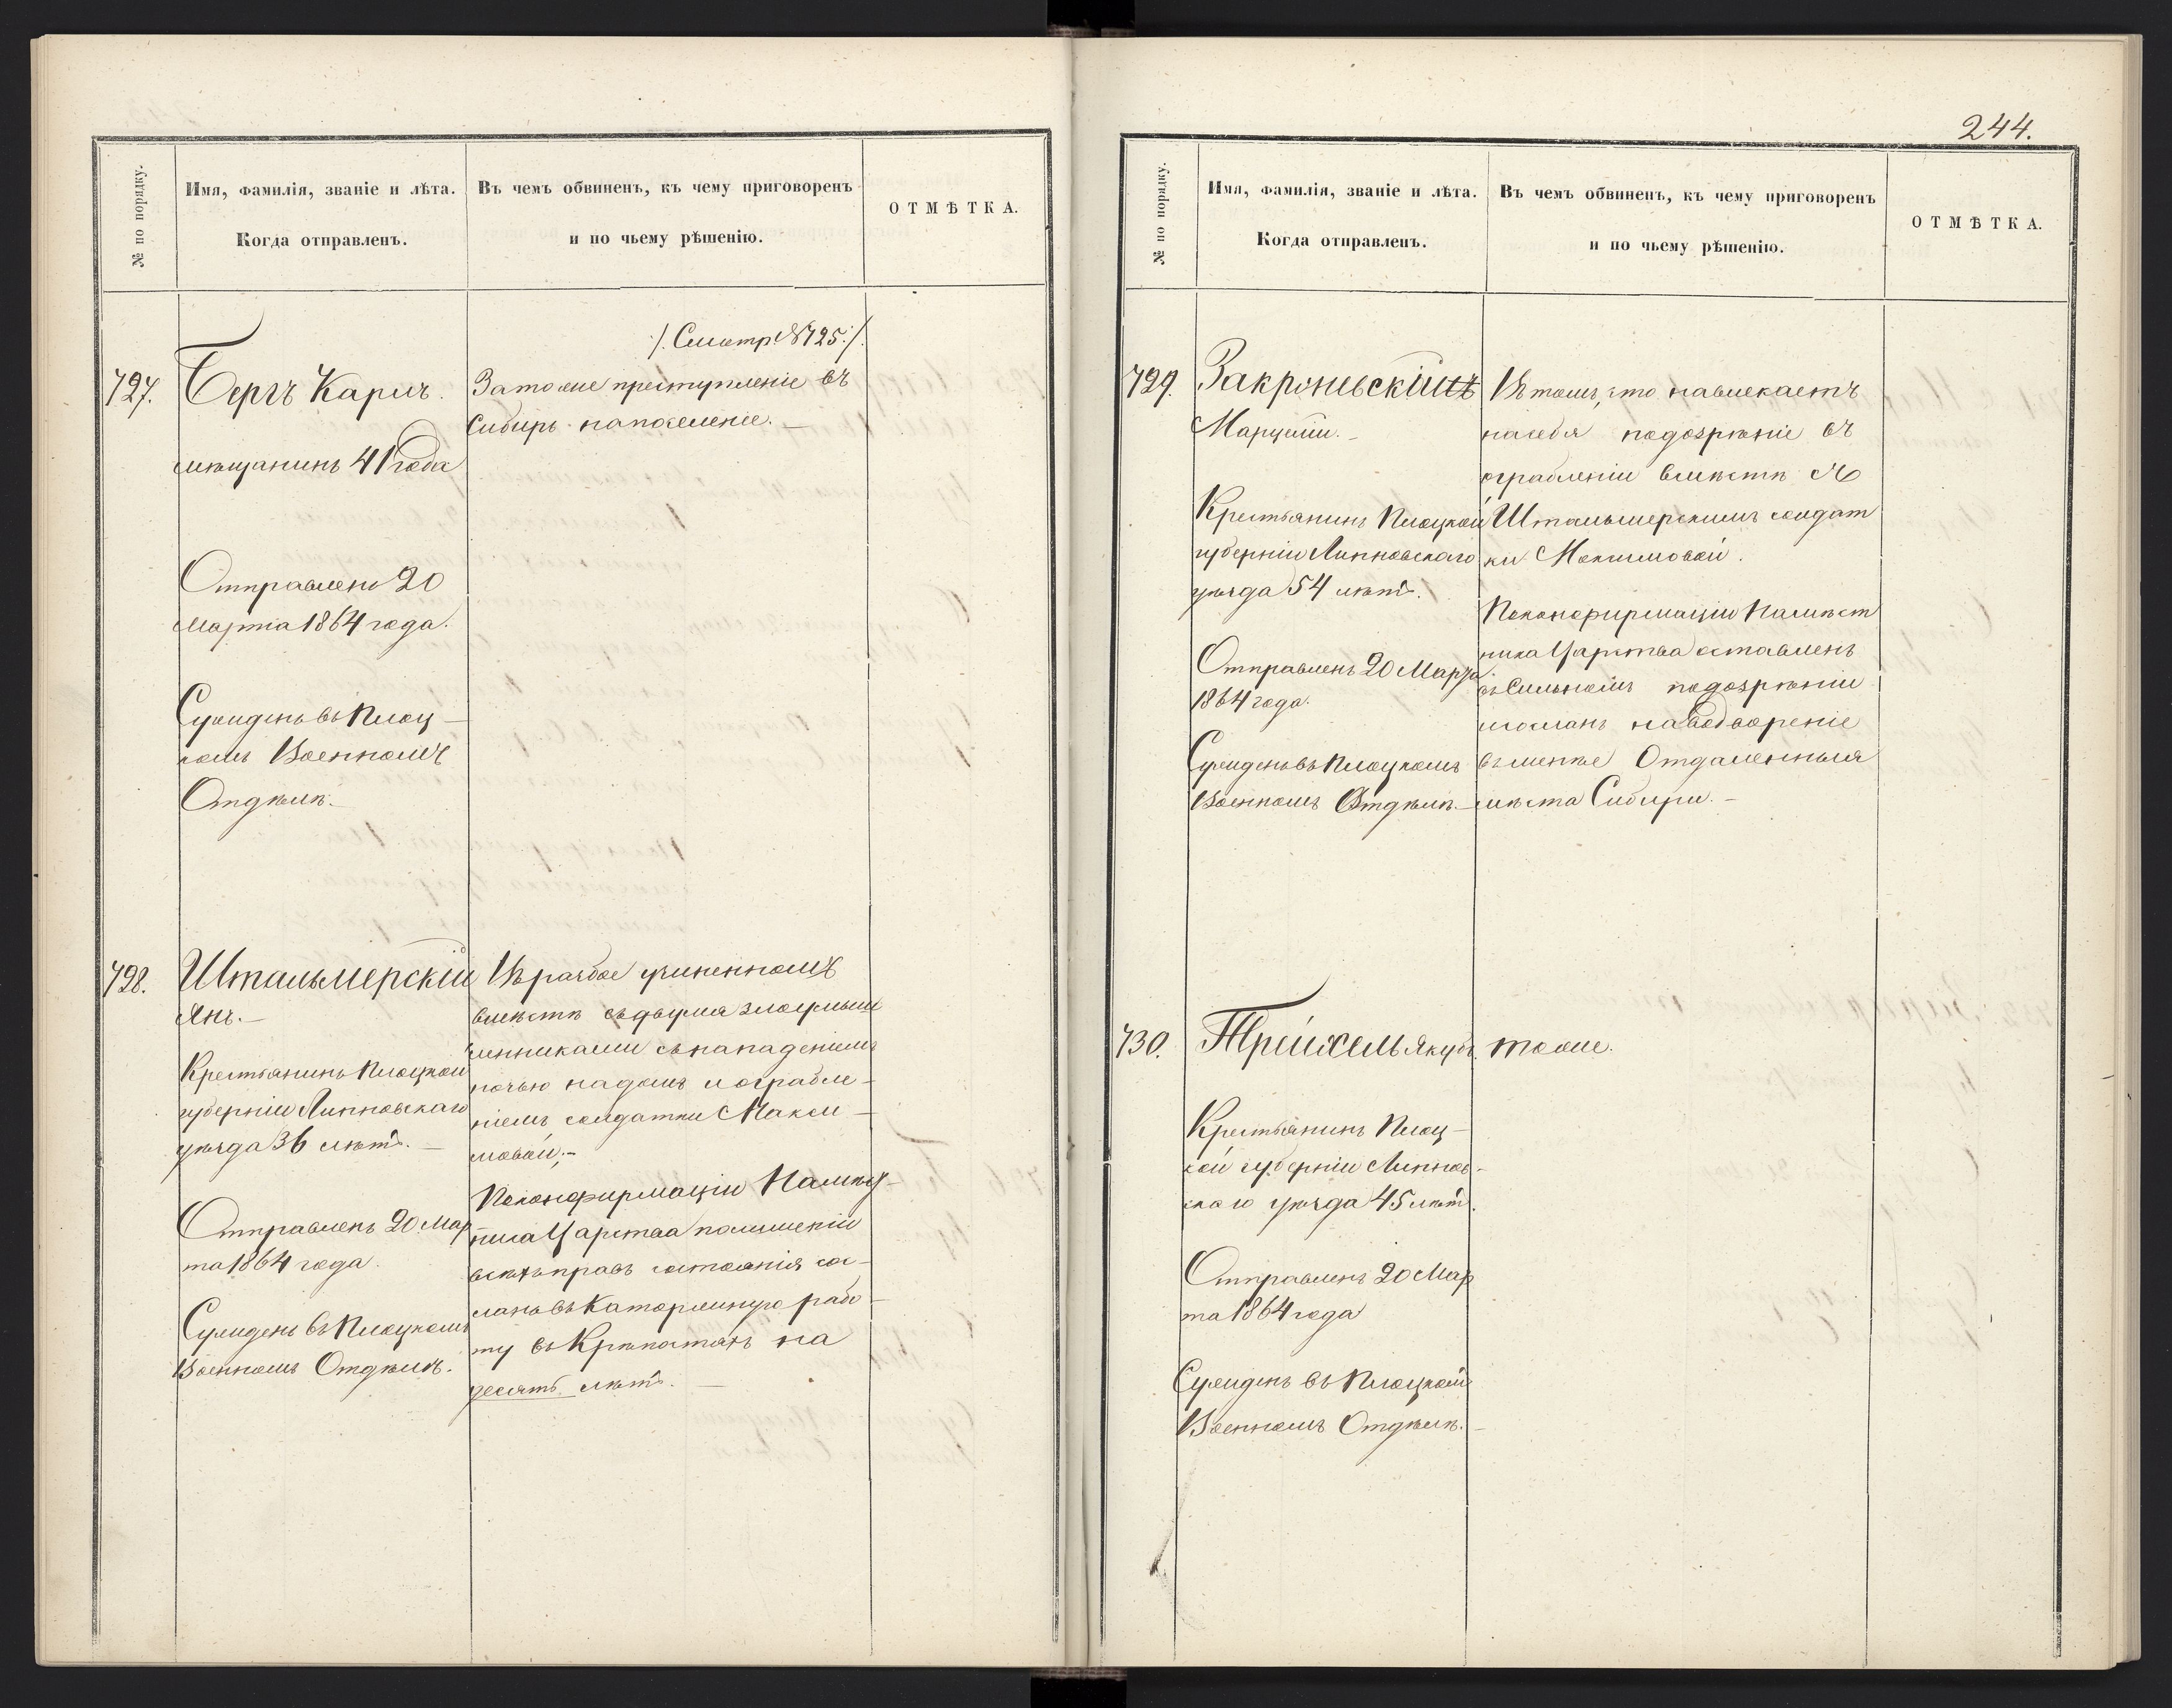 № по порядку.
Имя, фамилія, званіе и лѣта.
Когда отправленъ.
Въ чемъ обвиненъ, къ чему приговоренъ
и по чьему рѣшенію.
ОТМѢТКА.
/. Смотр. №725:/.
727.
Бергъ Карлъ.
мѣщанинъ 41 года
Отправленъ 20
Марта 1864 года.
Сужденъ въ Плоц-
комъ Военномъ
Отдѣлѣ.-
За тоже преступленіе въ
Сибирь на поселеніе.-
728.
Штальмерскій
Янъ.-
Крестьянинъ Плоцкой
губерніи Липновскаго
уѣзда 36 лѣтъ.-
Отправленъ 20 Мар
та 1864 года.
Сужденъ въ Плоцкомъ
Военномъ Отдѣлѣ.
Въ разбоѣ учиненномъ
вмѣстѣ съ двумя злоумыш
ленниками съ нападеніемъ
ночью на домъ и ограбле-
ніемъ солдатки Макси-
мовой;-
По конфирмаціи Намѣст-
ника Царства по лишеніи
всѣхъ правъ состоянія сос-
ланъ въ Каторжную рабо-
ту въ Крѣпостяхъ на
десять лѣтъ.-
244.
№ по порядку.
Имя, фамилія, званіе и лѣта.
Когда отправленъ.
Въ чемъ обвиненъ, къ чему приговоренъ
и по чьему рѣшенію.
ОТМѢТКА.
729.
Закроньскій
Марцелій.-
Крестьянинъ Плоцкой
губерніи Липновскаго
уѣзда 54 лѣтъ.
Отправленъ 20 Марта
1864 года.
Сужденъ въ Плоцкомъ
Военномъ Отдѣлѣ.-
Въ томъ, что навлекаетъ
на себя подозрѣніе въ
ограбленіи вмѣстѣ съ
Штальмерскимъ солдат
ки Максимовой.
По конфирмаціи Намѣст
ника Царства оставленъ
въ сильномъ подозрѣніи
и сосланъ на водвореніе
въ менѣе Отдаленныя
мѣста Сибири.-
730.
Трейхель Якубъ
Крестьянинъ Плоц-
кой губерніи Липнов-
скаго уѣзда 45 лѣтъ.
Отправленъ 20 Мар
та 1864 года
Сужденъ въ Плоцкомъ
Военномъ Отдѣлѣ.-
тоже.